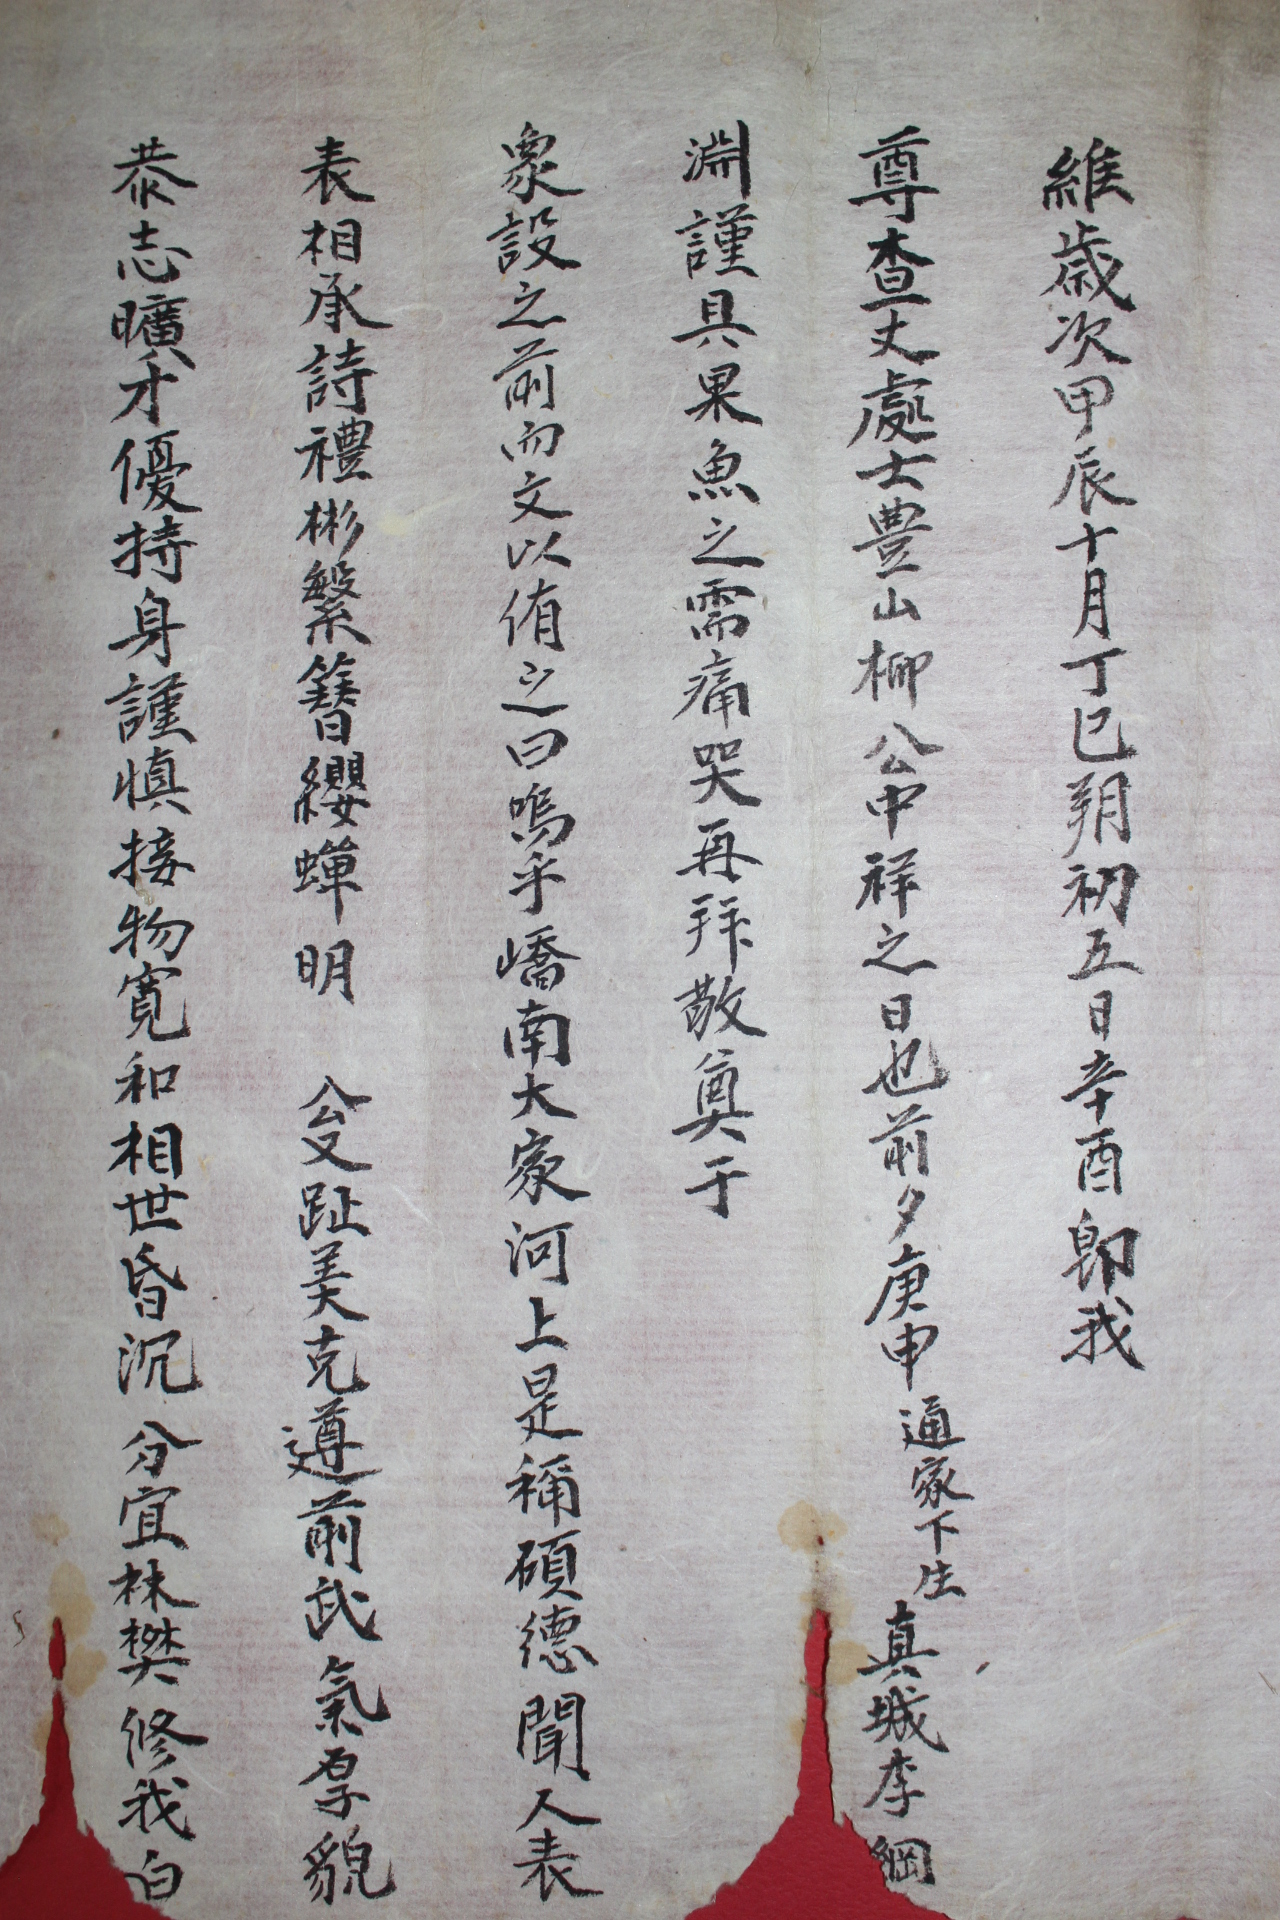 維歲次甲辰十月丁巳朔初五日辛酉卽我
尊査丈處士豊山柳公中祥之日也前夕庚申通家下生真城李綱
淵謹具果魚之需痛哭再拜敬奠于
象設之前而文以侑之曰嗚乎嶠南大家河上是稱碩德聞人表
表相承詩禮彬繁簪纓蟬明 公受趾美克遵前武氣厚貌
恭志曠才優持身謹愼接物寬和相世昏沉分宜林樊修我白